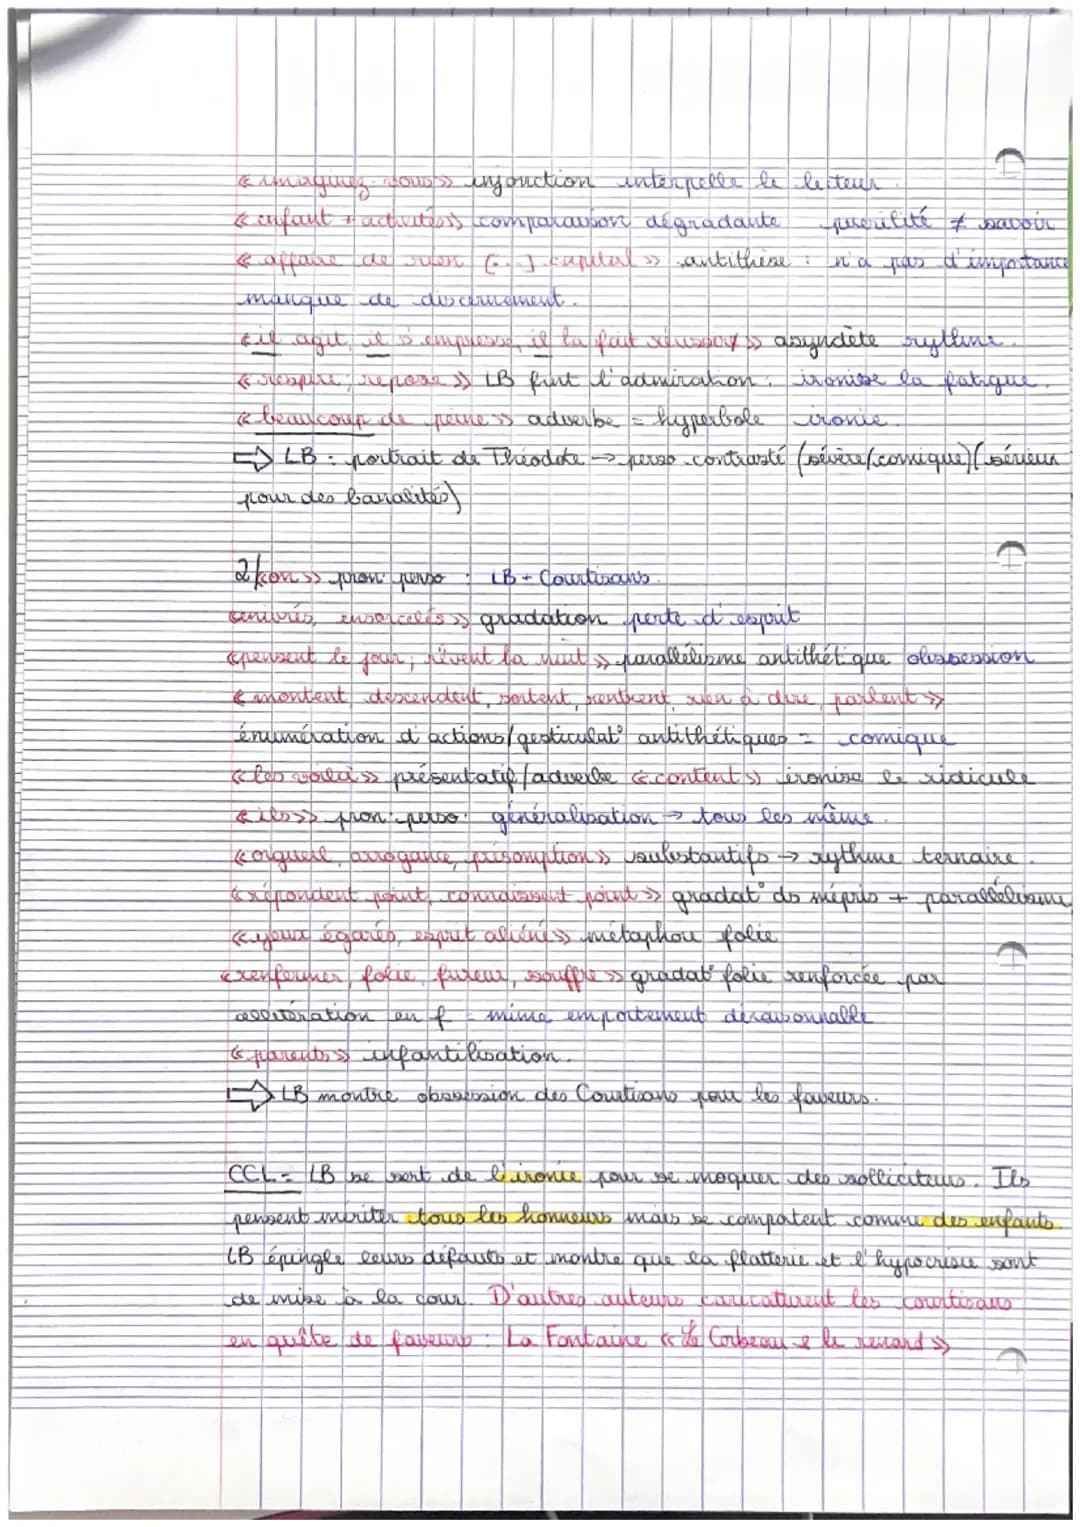 « imaginez-vous » injonction interpelle le lecteur.
« enfant + activités » comparaison dégradante puérilité ≠ savoir
« affaire de rien [...] capital » antithèse : n'a pas d'importance
manque de discernement.
« il agit, il s'empresse, il la fait réussir » asyndète rythme.
« respire, repose » LB feint l'admiration, ironise la fatigue.
« beaucoup de peine » adverbe = hyperbole ironie.
⇒ LB : portrait de Théodote → perso contrasté (sévère/comique) (sérieux
pour des banalités)
2/ « on » pron perso : LB + Courtisans.
« enivrés, ensorcelés » gradation perte d'esprit
« pensent le jour, rêvent la nuit » parallélisme antithétique obsession
« montent, descendent, sortent, rentrent, rien à dire, parlent »
énumération d'actions/gesticulat° antithétiques = comique
« les voilà » présentatif/adverbe « content » ironise le ridicule
« ils » pron perso généralisation → tous les même.
« orgueil, arrogance, présomption » substantifs → rythme ternaire.
« répondent point, connaissent point » gradat° ds mépris + parallélisme
« yeux égarés, esprit aliéné » métaphore folie
« renfermer, folie, fureur, souffre » gradat° folie renforcée par
allitération en f = mime emportement déraisonnable
« parents » infantilisation.
⇒ LB montre obsession des Courtisans pour les faveurs.
CCL = LB se sert de l'ironie pour se moquer des solliciteurs. Ils
pensent mériter tous les honneurs mais se comportent comme des enfants
LB épingle leurs défauts et montre que la flatterie et l'hypocrisie sont
de mise à la cour. D'autres auteurs caricaturent les courtisans
en quête de faveurs : La Fontaine « Le Corbeau & le renard »